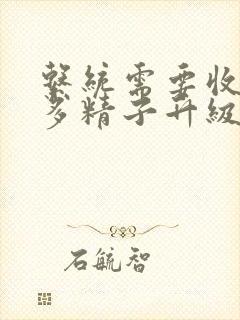 繫統需要收
多精子升級
石毓智